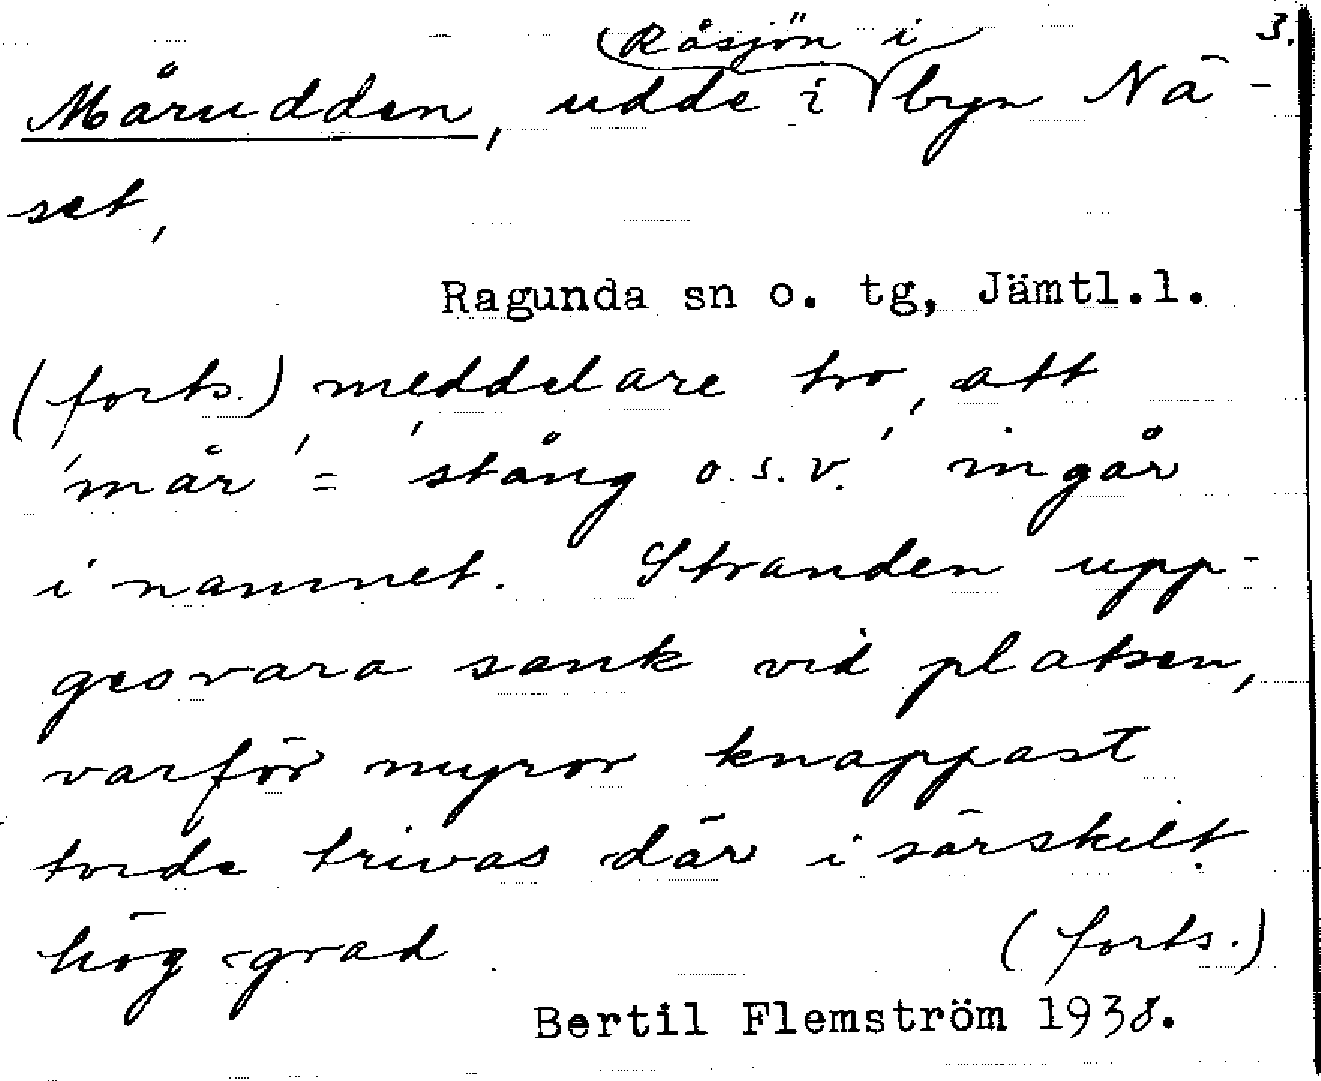 3.
Råsjön i
Mårudden, udde i byn Nä-
set,
Ragunda sn o. tg, Jämtl.l.
(forts.) meddelare tro, att
'mår' = 'stång o.s.v.' ingår
i namnet. Stranden upp-
gesvara sank vid platsen,
varför myror knappast
torde trivas där i särskilt
hög grad. (forts.)
Bertil Flemström 1938.